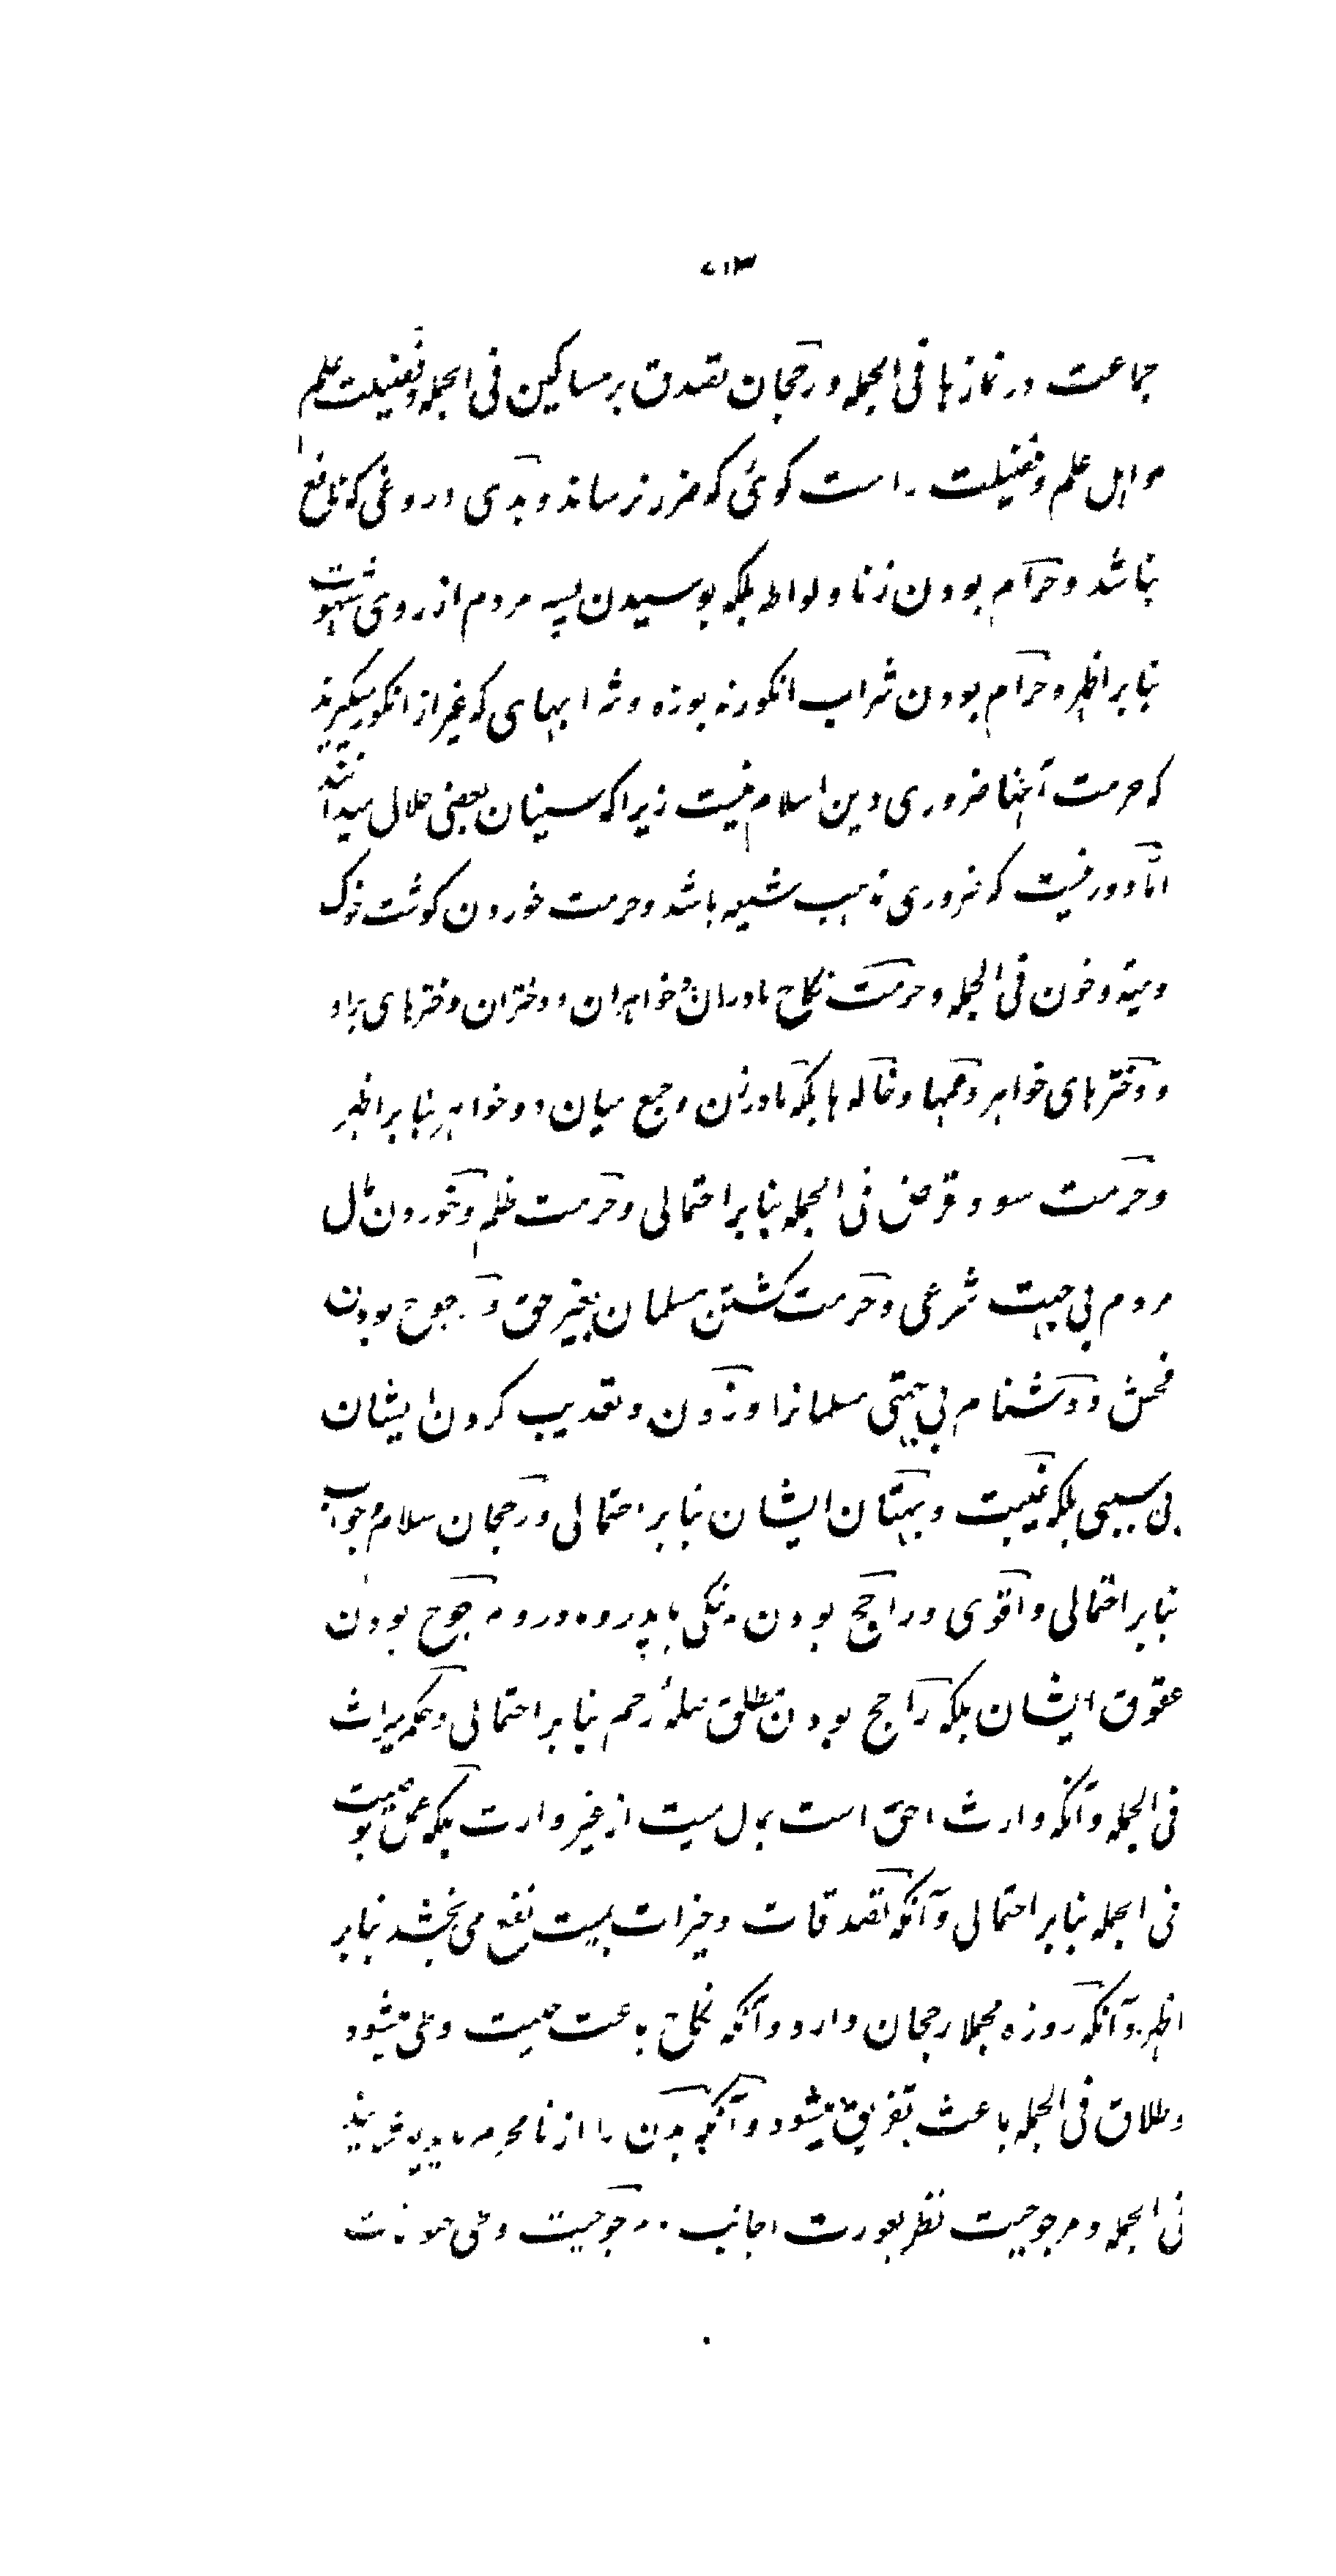 ۷۱۳
جماعت در نمازها فی الجمله و رجحان تصدق بر مساکین فی الجمله و فضیلت علم
و اهل علم و فضیلت راست کوئی که ضرر نرساند و بدی دروغی که نافع
نباشد و حرام بودن زنا و لواطه بلکه بوسیدن پسر مردم از روی شهوت
بنابر اظهر و حرام بودن شراب انکور نه بوزه و شرابهای که غیر از انکور میکیرند
که حرمت آنها ضروری دین اسلام نیست زیرا که سنیان بعضی حلال میدانند
امّا دور نیست که ضروری مذهب شیعه باشد و حرمت خوردن کوشت خوک
و میته و خون فی الجمله و حرمت نکاح مادران و خواهران و دختران و دخترهای برادر
و دخترهای خواهر و عمها و خاله ها بلکه مادر زن و جمع میان دو خواهر بنابر اظهر
و حرمت سود قرض فی الجمله بنابر احتمالی و حرمت ظلم و خوردن مال
مردم بی جهت شرعی و حرمت کشتن مسلمان بغیر حق و مرجوح بودن
فحش و دشنام بی جهتی مسلمانرا و زدن و تعذیب کردن ایشان
بی سببی بلکه غیبت و بهتان ایشان بنابر احتمالی و رجحان سلام و جواب
بنابر احتمالی و اقوی و راجح بودن نیکی با پدر و مادر و مرجوح بودن
عقوق ایشان بلکه راجح بودن مطلق صلهٔ رحم بنابر احتمالی و حکم میراث
فی الجمله و آنکه وارث احق است بمال میت از غیر وارث بلکه عمل بوصیت
فی الجمله بنابر احتمالی و آنکه تصدقات و خیرات بمیت نفع می بخشد بنابر
اظهر و آنکه روزه مجملا رجحان دارد و آنکه نکاح باعث حلیت وطی میشود
و طلاق فی الجمله باعث تفریق میشود و آنکه بدن را از نامحرم باید پوشانید
فی الجمله و مرجوحیت نظر بعورت اجانب مرجوحیت وطی حیوانات